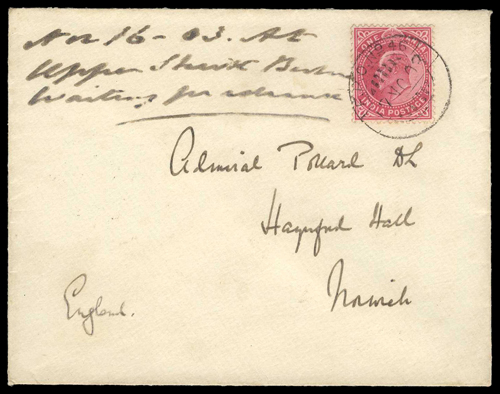 Nov 16 - 03. At
Upper Sheikh
Waiting for advance
ONE ANNA
INDIA POSTAGE
46
Admiral Pollard DL
Haynford Hall
Norwich
England.